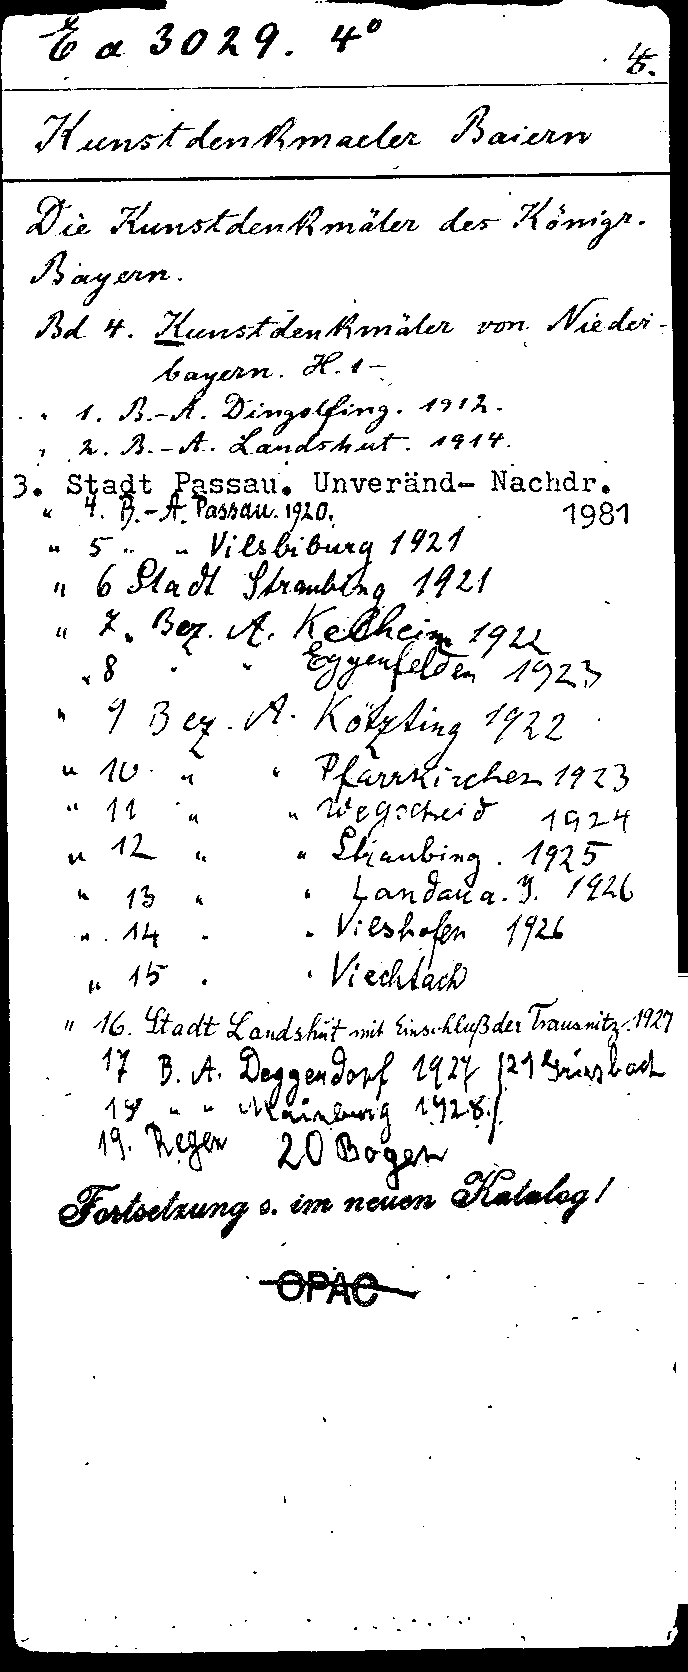 Ea 3029. 4°
4.
Kunstdenkmaeler Baiern
Die Kunstdenkmäler des Königr.
Bayern.
Bd 4. Kunstdenkmäler von Nieder-
bayern. H. 1-
" 1. B.-A. Dingolfing. 1912.
" 2. B.-A. Landshut. 1914.
3. Stadt Passau. Unveränd- Nachdr.
" 4. B.-A. Passau. 1920. 1981
" 5 " " Vilsbiburg 1921
" 6 Stadt Straubing 1921
" 7. Bez. A. Kelheim 1922
" 8 " " Eggenfelden 1923
" 9 Bez. A. Kötzting 1922
" 10 " " Pfarrkirchen 1923
" 11 " " Wegscheid 1924
" 12 " " Straubing. 1925
" 13 " " Landau a. I. 1926
" 14 " " Vilshofen 1926
" 15 " " Viechtach
" 16. Stadt Landshut mit Einschluß der Trausnitz. 1927
17 B. A. Deggendorf 1927 / 21 Griesbach
18 " " Mainburg 1928. /
19. Regen 20 Bogen
Fortsetzung s. im neuen Katalog!
OPAC